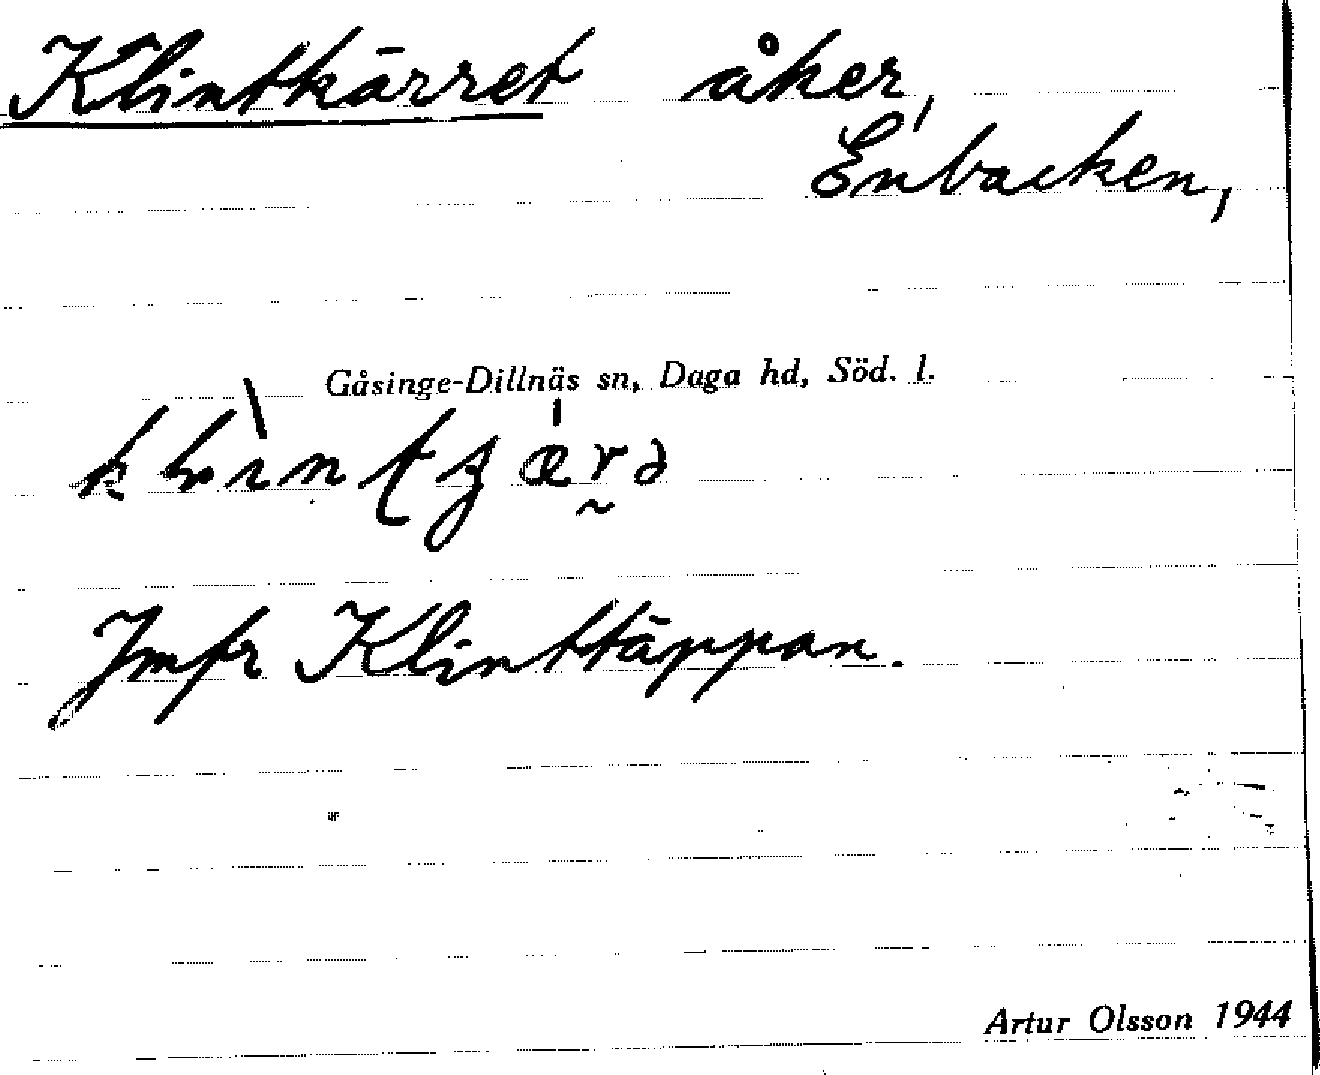 Klintkärret åker,
Enbacken,
Gåsinge-Dillnäs sn, Daga hd, Söd. l.
Jmfr Klinttäppan.
Artur Olsson 1944